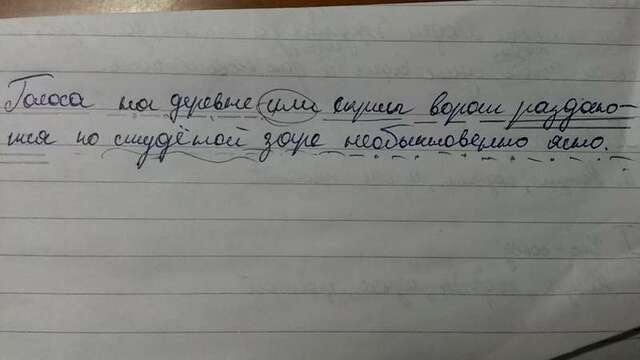 Голоса на деревне или скрип ворот раздают-
ся по студёной заре необыкновенно ясно.